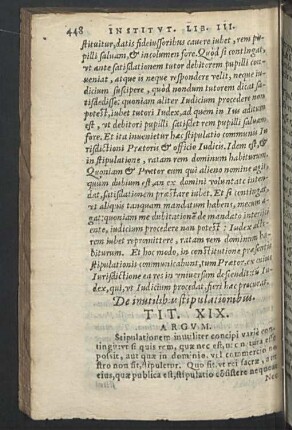 448 INSTITVT. LIB. III.
stituitur, datis fideiussoribus cauere iubet, rem pu-
pilli saluam, & incolumem fore. Quòd si contingat,
vt ante satisdationem tutor debitorem pupilli con-
ueniat, atque is neque respondere velit, neque iu-
dicium suscipere, quòd nondum tutorem dicat sa-
tisdedisse: quoniam aliter Iudicium procedere non
potest, iubet tutori Iudex, ad quem in Ius aditum
est, vt debitori pupilli satisdet rem pupilli saluam
fore. Et ita inuenitur hæc stipulatio communis Iu-
risdictioni Prætoris & officio Iudicis. Idem est, &
in stipulatione, ratam rem dominum habiturum.
Quoniam & Prætor eum qui alieno nomine agit,
quum dubium est, an ex domini voluntate
dat, satisdationem præstare iubet. Et si contingat,
vt aliquis tanquam mandatum habens, mecum a-
gat: quoniam me dubitatione de mandato
cente, iudicium procedere non potest: Iudex
rem iubet repromittere, ratam rem dominum ha-
biturum. Et hoc modo, in constitutione præsentis
stipulationis communicabunt, tum Prætor, ex cuius
Iurisdictione ea res in vniuersum descendit: tum Iu-
dex, qui, vt Iudicium procedat, fieri hæc procurat.
De inutilibus stipulationibus.
TIT. XIX.
ARGVM.
Stipulationem inutiliter concipi variè con-
tingit: vt si quis rem, quæ nec est, nec
possit, aut quæ in dominio, vel commercio no-
stro non sit, stipuletur. Quo fit, vt rei sacræ,
eius, quæ publica est, stipulatio cõsistere nequeat
Nec